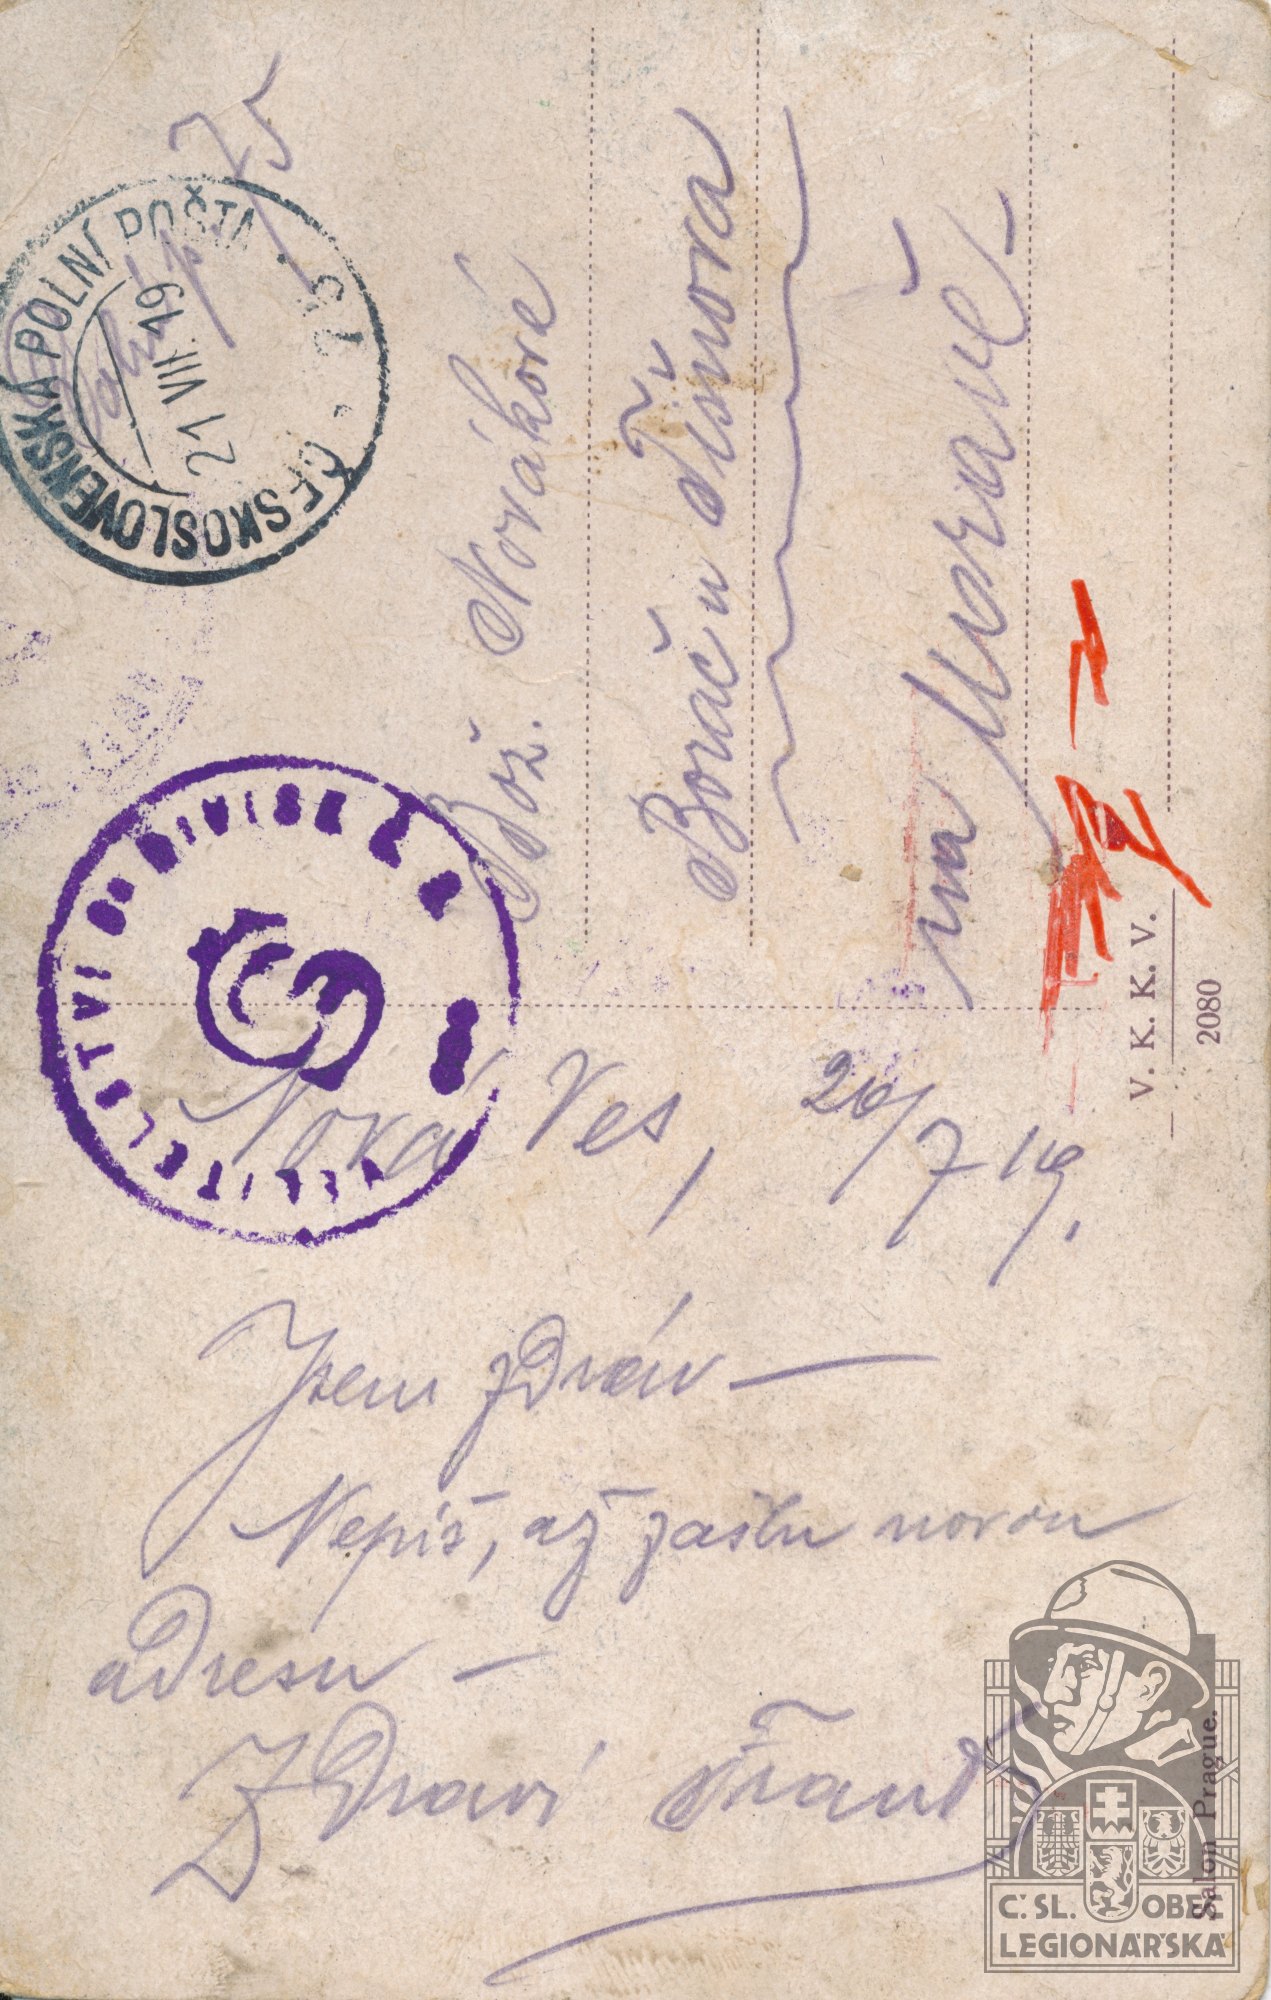 75
ČESKOSLOVENSKÁ POLNÍ POŠTA
21 VII. 19
Bož. Novákové
Borač u Tišnova
na Moravě
VELITELSTVÍ DIVISE
V. K. K. V.
2080
Nová Ves, 20/7 19.
Jsem zdráv —
Nepiš, až zašlu novou
adresu —
Zdraví Frant
Salon Prague.
Č. SL. OBEC
LEGIONÁŘSKÁ